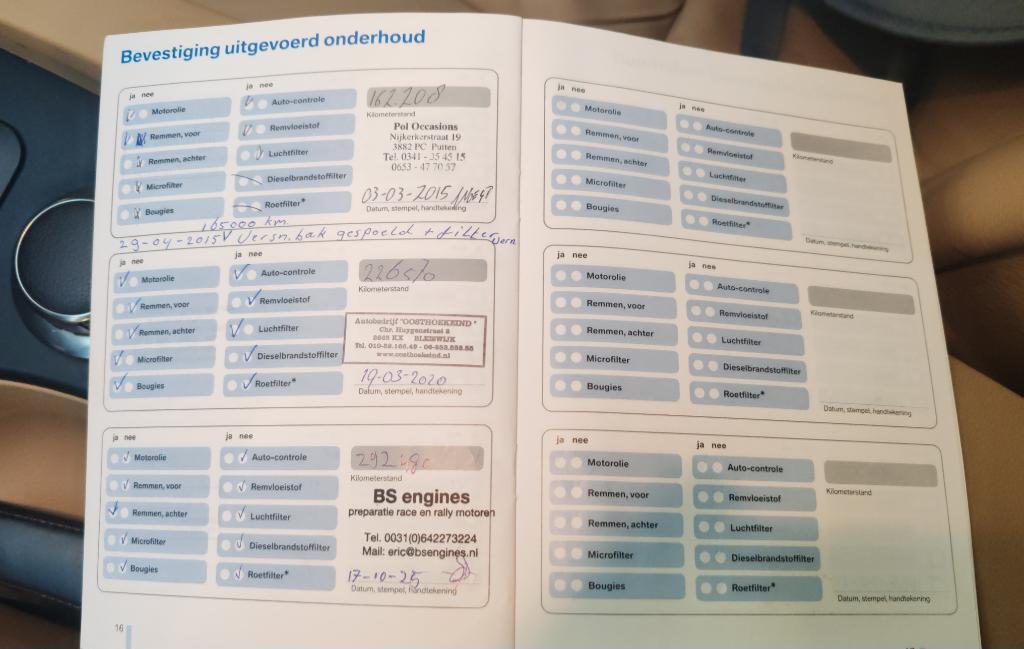 Bevestiging uitgevoerd onderhoud
ja nee
ja nee
Motorolie
Remmen, voor
Remmen, achter
Microfilter
Bougies
Auto-controle
Remvloeistof
Luchtfilter
Dieselbrandstoffilter
Roetfilter*
162.208
Kilometerstand
Pol Occasions
Nijkerkerstraat 19
3882 PC Putten
Tel. 0341 - 35 45 15
0653 - 47 70 57
03-03-2015
Datum, stempel, handtekening
165000 km.
29-04-2015 Versn.bak gespoeld + filter vern
ja nee
ja nee
Motorolie
Remmen, voor
Remmen, achter
Microfilter
Bougies
Auto-controle
Remvloeistof
Luchtfilter
Dieselbrandstoffilter
Roetfilter*
Kilometerstand
Autobedrijf "OOSTHOEKEIND"
Chr. Huygensstraat 8
2665 KX BLEISWIJK
www.oosthoekeind.nl
19-03-2020
Datum, stempel, handtekening
ja nee
ja nee
Motorolie
Remmen, voor
Remmen, achter
Microfilter
Bougies
Auto-controle
Remvloeistof
Luchtfilter
Dieselbrandstoffilter
Roetfilter*
Kilometerstand
BS engines
preparatie race en rally motoren
Tel. 0031(0)642273224
Mail: eric@bsengines.nl
17-10-25
Datum, stempel, handtekening
16
ja nee
ja nee
Motorolie
Remmen, voor
Remmen, achter
Microfilter
Bougies
Auto-controle
Remvloeistof
Luchtfilter
Dieselbrandstoffilter
Roetfilter*
Kilometerstand
Datum, stempel, handtekening
ja nee
ja nee
Motorolie
Remmen, voor
Remmen, achter
Microfilter
Bougies
Auto-controle
Remvloeistof
Luchtfilter
Dieselbrandstoffilter
Roetfilter*
Kilometerstand
Datum, stempel, handtekening
ja nee
ja nee
Motorolie
Remmen, voor
Remmen, achter
Microfilter
Bougies
Auto-controle
Remvloeistof
Luchtfilter
Dieselbrandstoffilter
Roetfilter*
Kilometerstand
Datum, stempel, handtekening